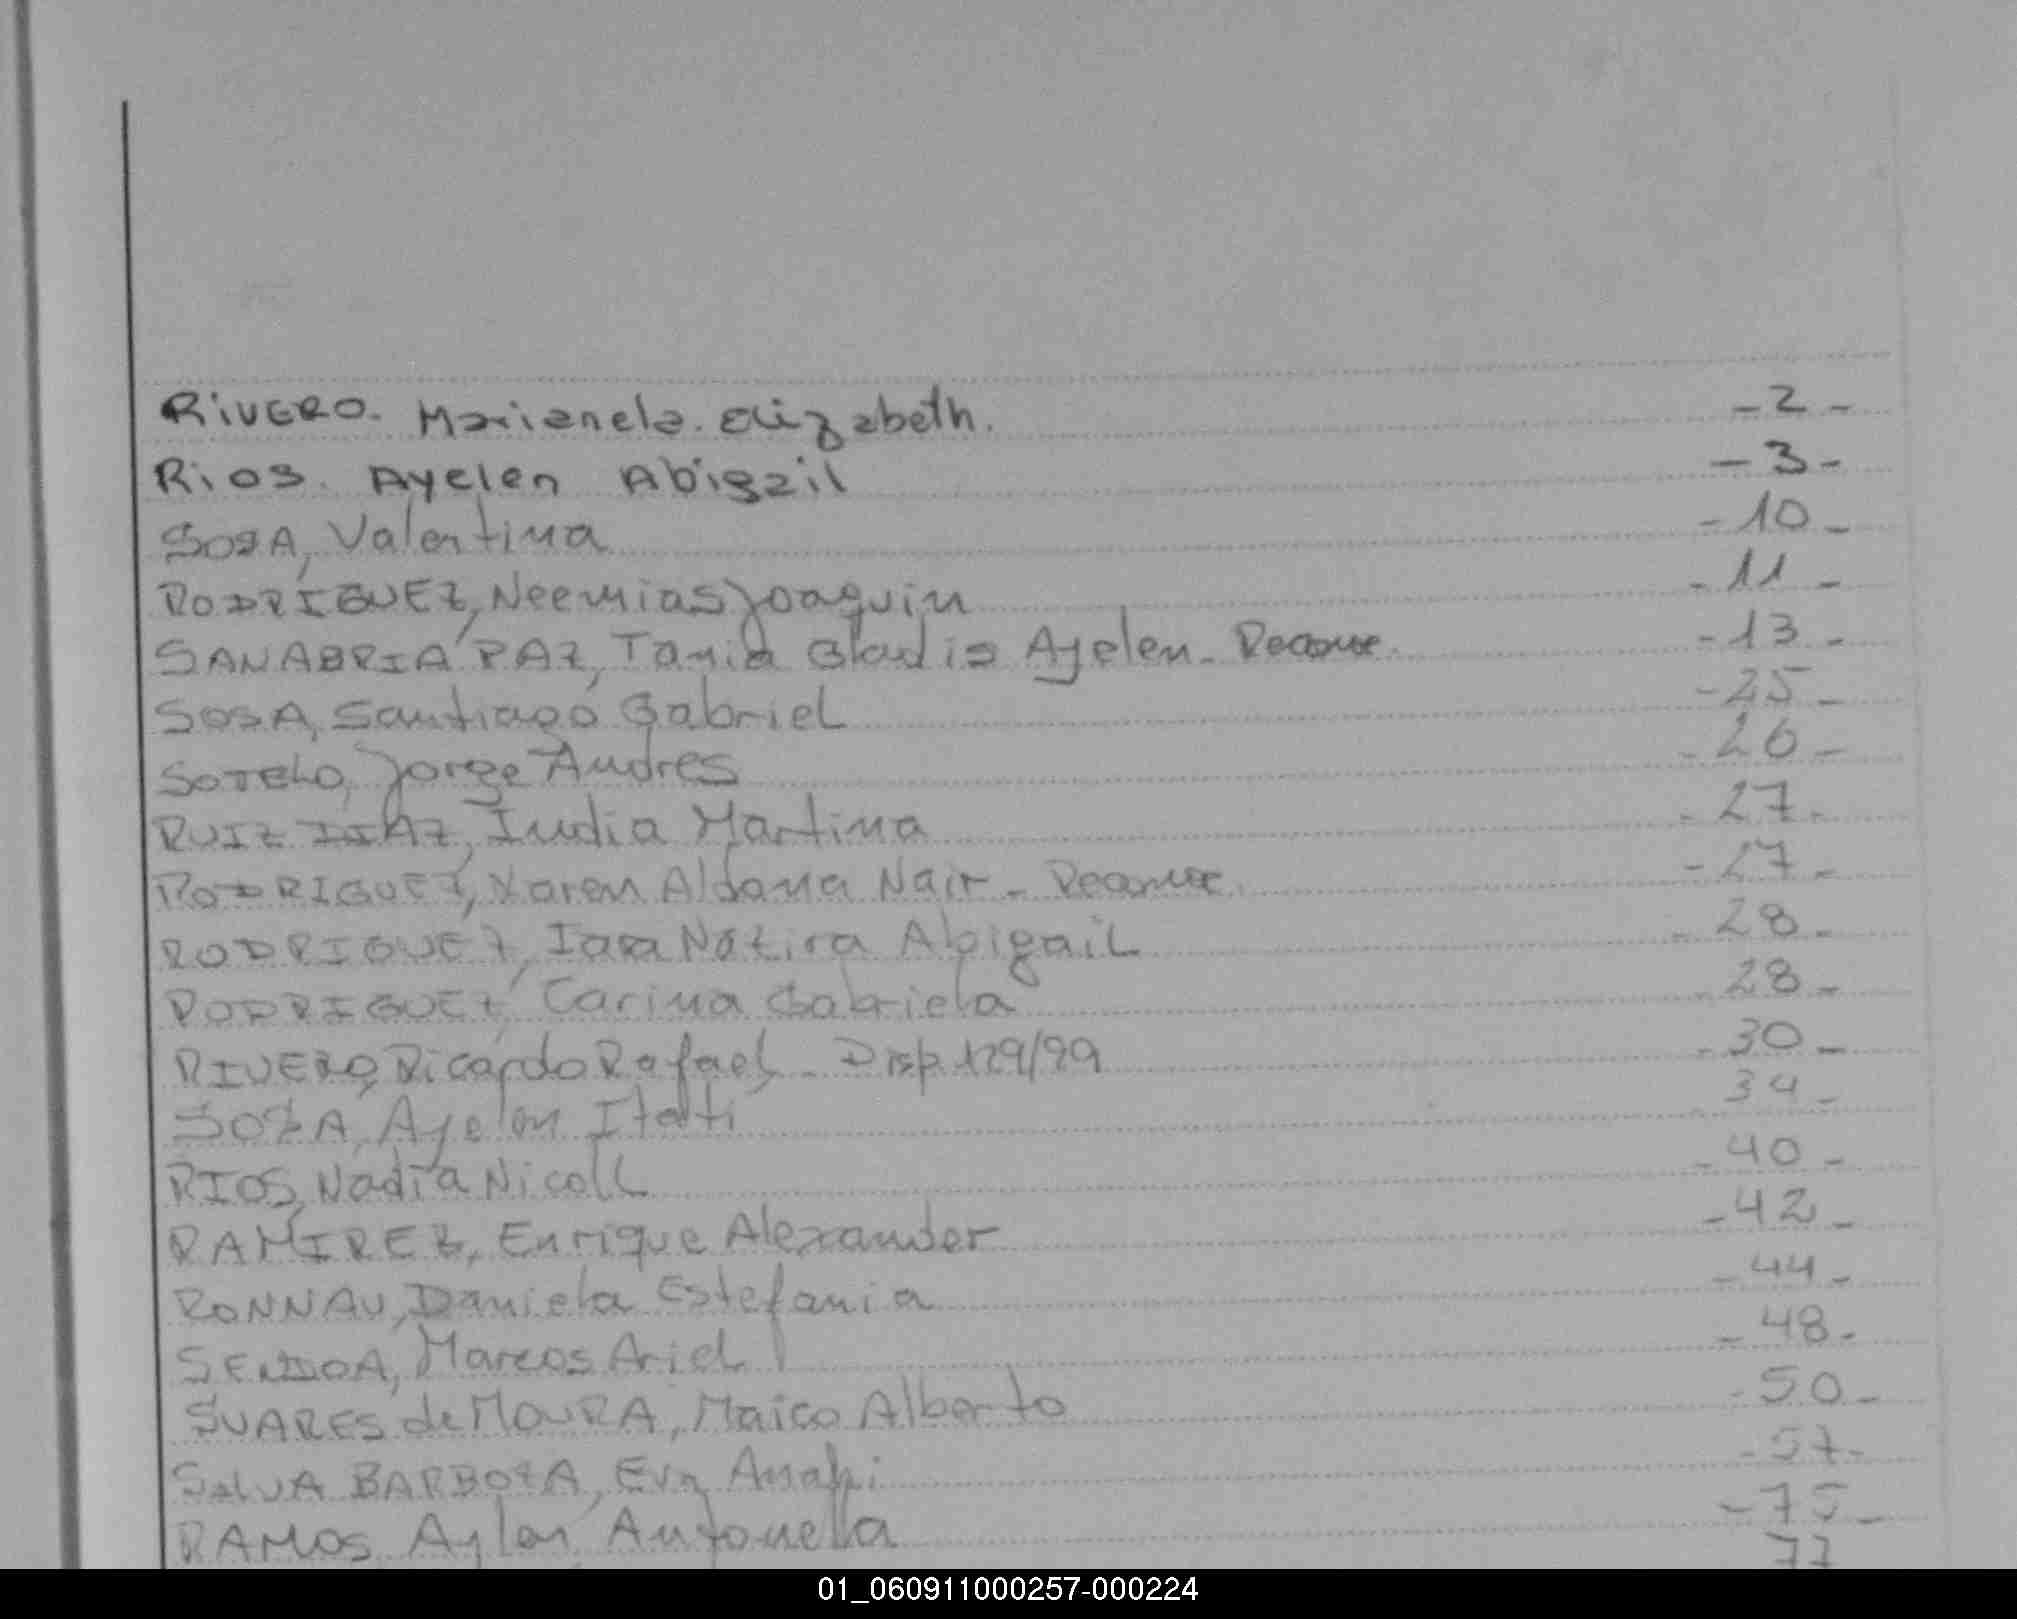 RIVERO. Marianela. Elizabeth. -2-
Rios. Ayelen Abigail -3-
SOSA, Valentina -10-
RODRIGUEZ, Neemias Joaquin -11-
SANABRIA PAZ, Tania Gladis Ayelen - Reconoc. -13-
SOSA, Santiago Gabriel -25-
SOTELO, Jorge Andres -26-
RUIZ DIAZ, India Martina -27-
RODRIGUEZ, Karen Aldana Nair - Reconoc. -27-
RODRIGUEZ, Iara Abigail -28-
RODRIGUEZ, Carina Gabriela 28-
RIVERO, Ricardo Rafael - Disp. 129/99 -30-
SOZA, Ayelen Itati 34-
RIOS, Nadia Nicoll -40-
RAMIREZ, Enrique Alexander -42-
RONNAU, Daniela Estefania -44-
SENDOA, Marcos Ariel -48-
SUARES de MOURA, Maico Alberto -50-
SILVA BARBOZA, Eva Anahi -57-
RAMOS Aylen Antonella -75-
77
01_060911000257-000224